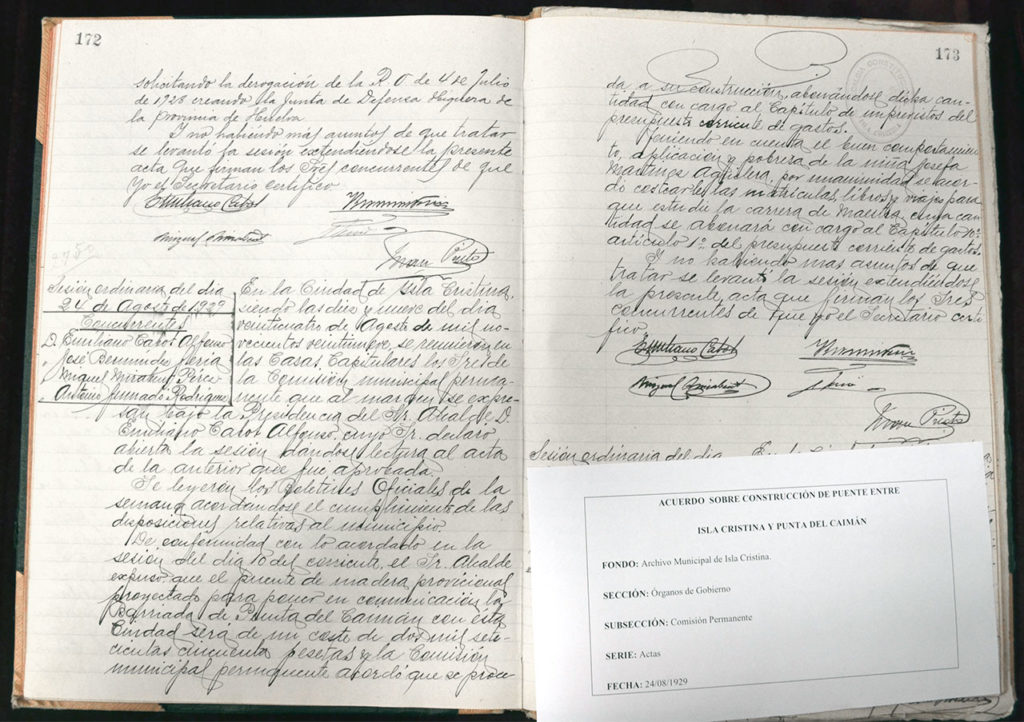 172
solicitando la derogación de la R. O. de 4 de Julio
de 1928 creando la Junta de Defensa Higiénica de
la provincia de Huelva
Y no habiendo más asuntos de que tratar
se levantó la sesión extendiéndose la presente
acta que firman los Sres concurrentes de que
yo el Secretario certifico
Emiliano Cabot
Miguel Mirabent
Juan Prieto
Sesión ordinaria del dia
24 de Agosto de 1929
Concurrentes
D. Emiliano Cabot Alfonso
" José Bermúdez
" Miguel Mirabent Pérez
Antonio Rodríguez
En la Ciudad de Isla Cristina,
siendo las diez y nueve del dia
veinticuatro de Agosto de mil no-
vecientos veintinueve, se reunieron en
las Casas Capitulares los Sres de
la Comisión municipal perma-
nente que al margen se expre-
san bajo la Presidencia del Sr. Alcalde D.
Emiliano Cabot Alfonso, cuyo Sr. declaró
abierta la sesión dándose lectura al acta
de la anterior que fué aprobada.
Se leyeron los Boletines Oficiales de la
semana acordándose el cumplimiento de las
disposiciones relativas al municipio
De conformidad con lo acordado en la
sesión del dia 10 del corriente, el Sr. Alcalde
expuso que el puente de madera provicional
proyectado para poner en comunicación la
Barriada de Punta del Caiman con ésta
Ciudad será de un coste de dos mil sete-
cientas cincuenta pesetas y la Comisión
municipal permanente acordó que se proce-
173
da a su construcción, abonándose dicha can-
tidad con cargo al Capítulo de imprevistos del
presupuesto corriente de gastos.
Teniendo en cuenta el buen comportamien-
to, aplicación y pobreza de la niña Josefa
Martínez Aguilera, por unanimidad se acor-
dó costearle las matrículas, libros y viajes para
que estudie la carrera de Maestra, cuya can-
tidad se abonará con cargo al Capítulo
artículo 1º del presupuesto corriente de gastos.
Y no habiendo mas asuntos de que
tratar se levantó la sesión extendiéndose
la presente acta que firman los Sres
concurrentes de que yo el Secretario certi-
fico
Emiliano Cabot
Miguel Mirabent
Juan Prieto
Sesión ordinaria del dia
ACUERDO SOBRE CONSTRUCCIÓN DE PUENTE ENTRE
ISLA CRISTINA Y PUNTA DEL CAIMÁN
FONDO: Archivo Municipal de Isla Cristina.
SECCIÓN: Órganos de Gobierno
SUBSECCIÓN: Comisión Permanente
SERIE: Actas
FECHA: 24/08/1929